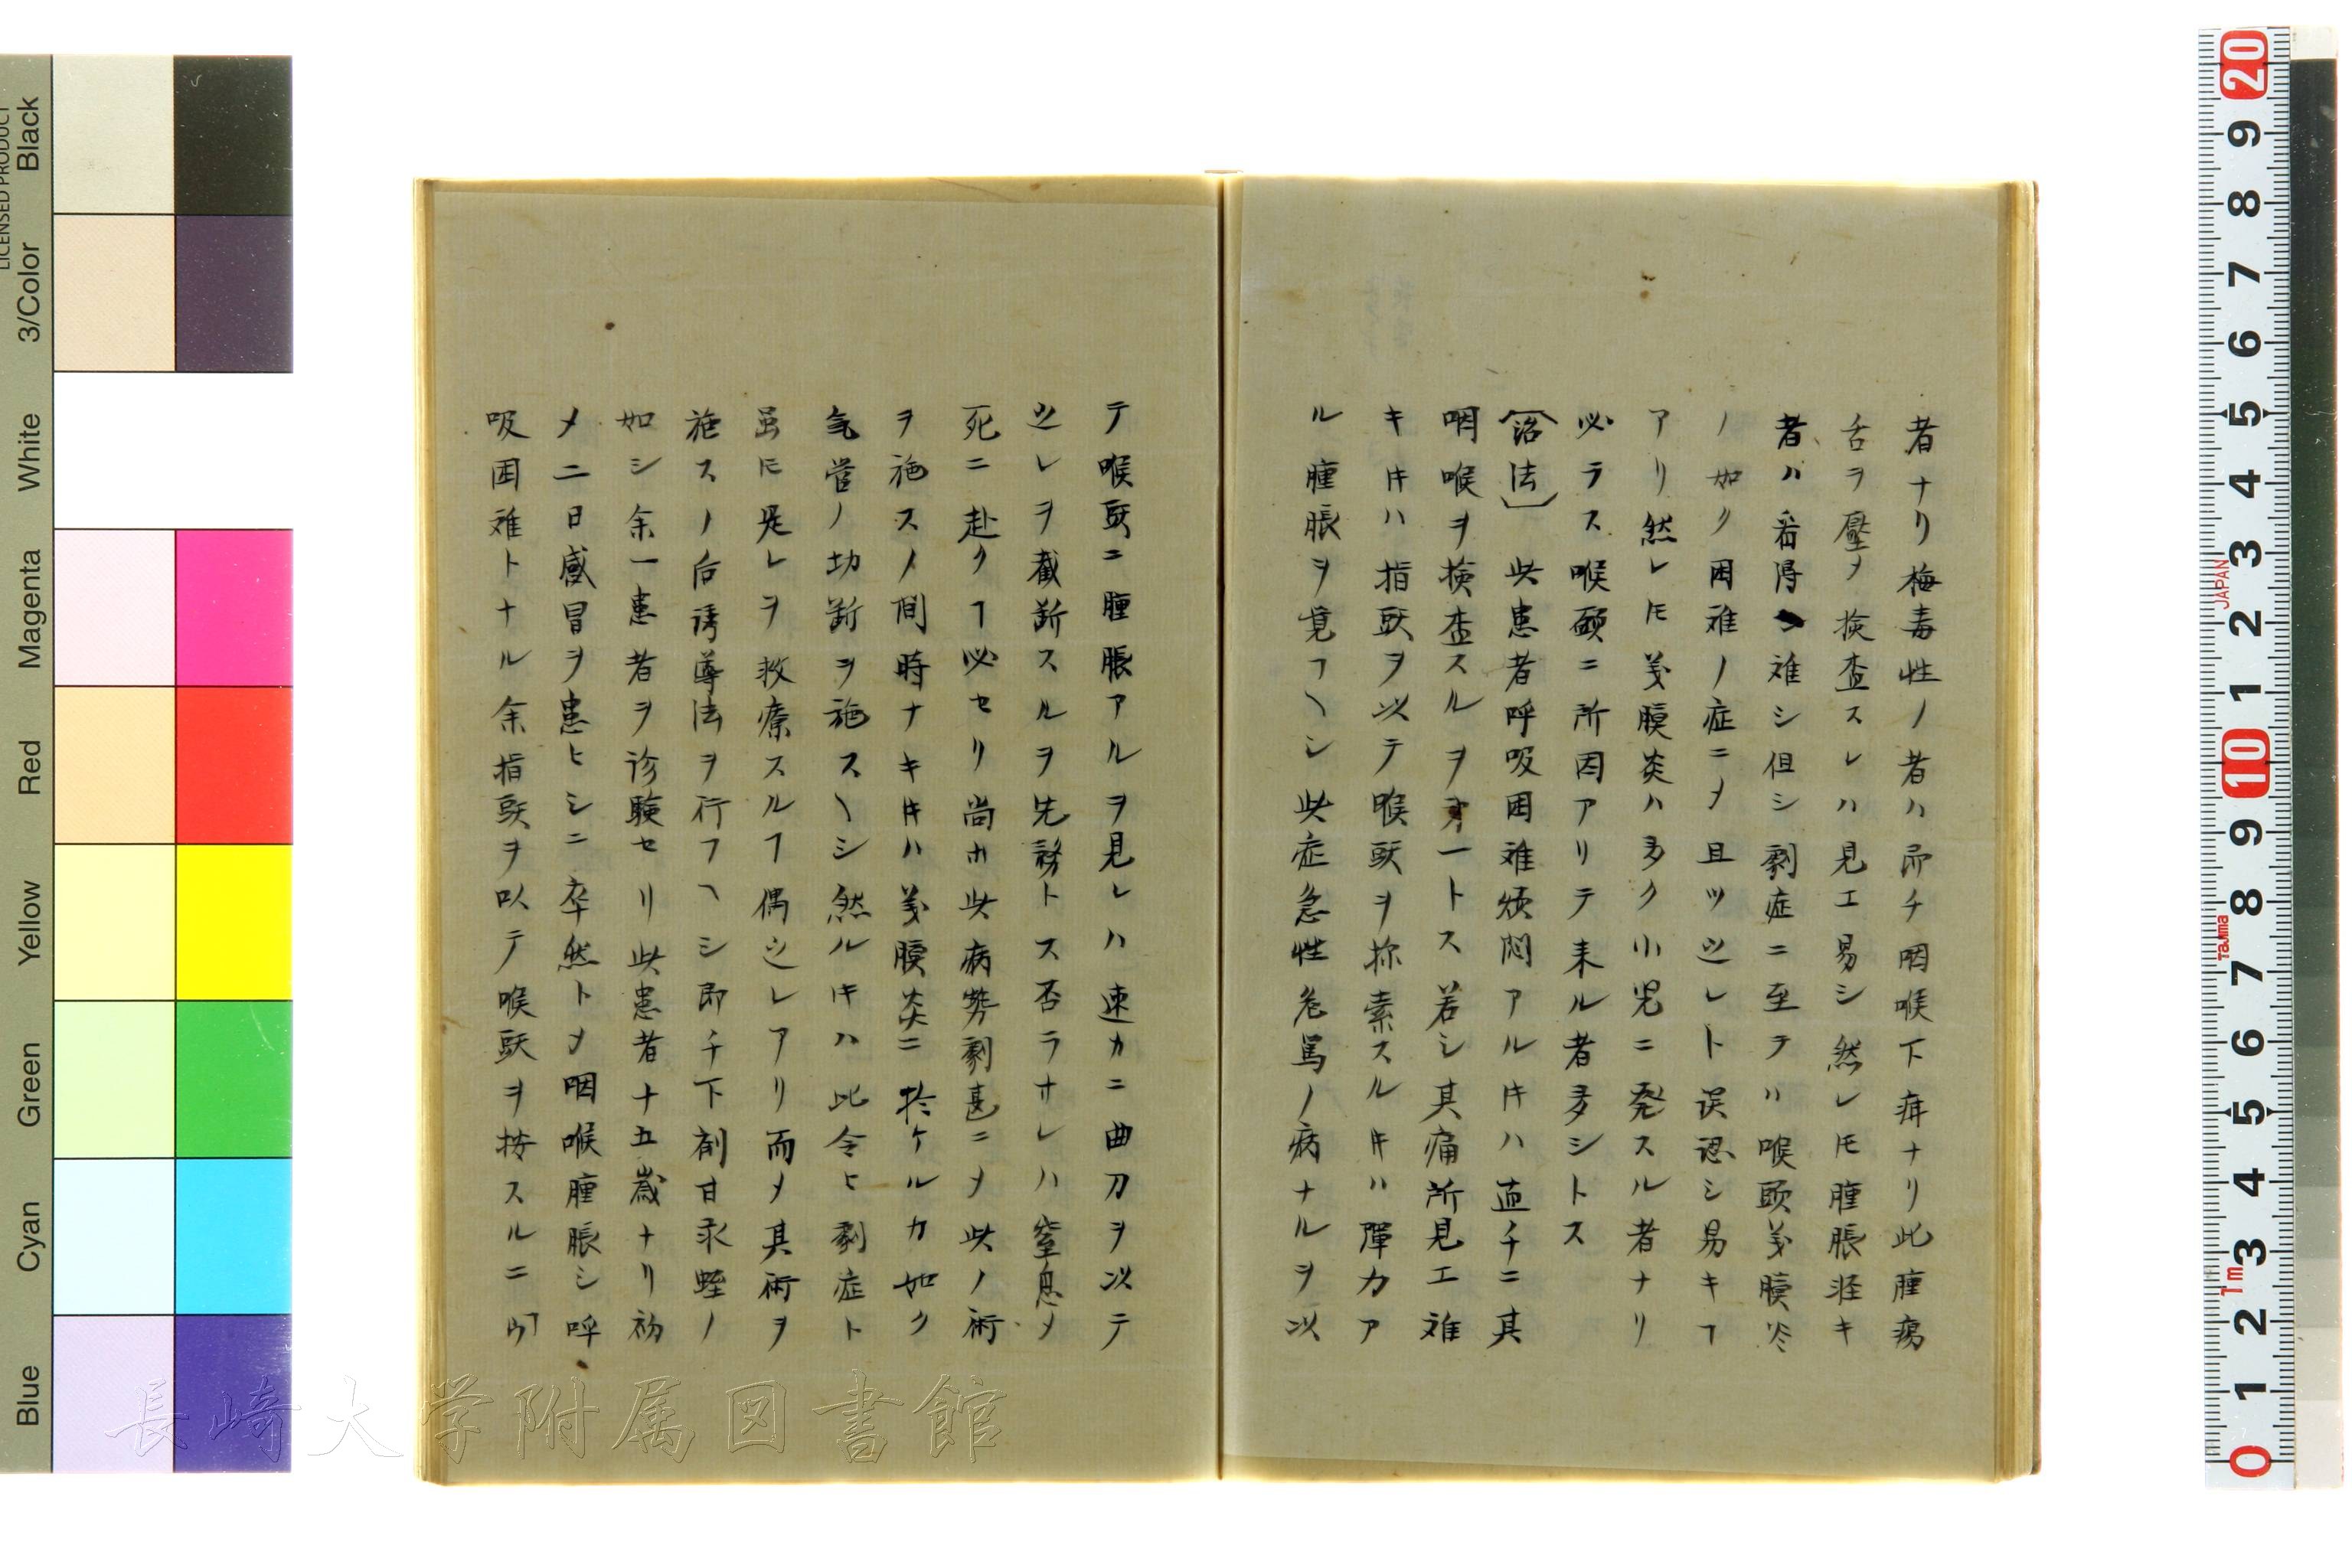 者ナリ梅毒性ノ者ハ即チ咽喉下疳ナリ此腫瘍
舌ヲ壓〆検査スレハ見エ易シ然レ𪜈腫脹軽キ
者ハ看得シ難シ但シ劇症ニ至テハ喉頭義膜炎
ノ如ク困難ノ症ニ〆且ツ之レト誤認シ易キヿ
アリ然レ𪜈義膜炎ハ多ク小児ニ発スル者ナリ
必ラス喉頭ニ所因アリテ来ル者多シトス
〔治法〕此患者呼吸困難煩悶アル𬼀ハ直チニ其
咽喉ヲ検査スルヲ第一トス若シ其痛所見エ難
キ𬼀ハ指頭ヲ以テ喉頭ヲ探索スル𬼀ハ弾力ア
ル腫脹ヲ覚フヘシ此症急性危篤ノ病ナルヲ以
テ喉頭ニ腫脹アルヲ見レハ速カニ曲刀ヲ以テ
之レヲ截断スルヲ先務トス否ラサレハ窒息〆
死ニ赴クヿ必セリ尚ホ此病勢劇甚ニ〆此ノ術
ヲ施スノ間時ナキ𬼀ハ義膜炎ニ於ケルカ如ク
気管ノ切断ヲ施スヘシ然ル𬼀ハ此令ヒ劇症ト
虽𪜈是レヲ救療スルヿ偶之レアリ而〆其術ヲ
施スノ后誘導法ヲ行フヘシ即チ下剤甘汞蛭ノ
如シ余一患者ヲ診験セリ此患者十五歳ナリ初
メ二日感冒ヲ患ヒシニ卒然ト〆咽喉腫脹シ呼
吸困難トナル余指頭ヲ以テ喉頭ヲ按スルニ
長崎大学附属図書館
LICENSED PRODUCT
Black
3/Color
White
Magenta
Red
Yellow
Green
Cyan
Blue
20
9
8
7
6
5
4
3
2
1
10
9
8
7
6
5
4
3
2
1
0
JAPAN
Tajima
1m